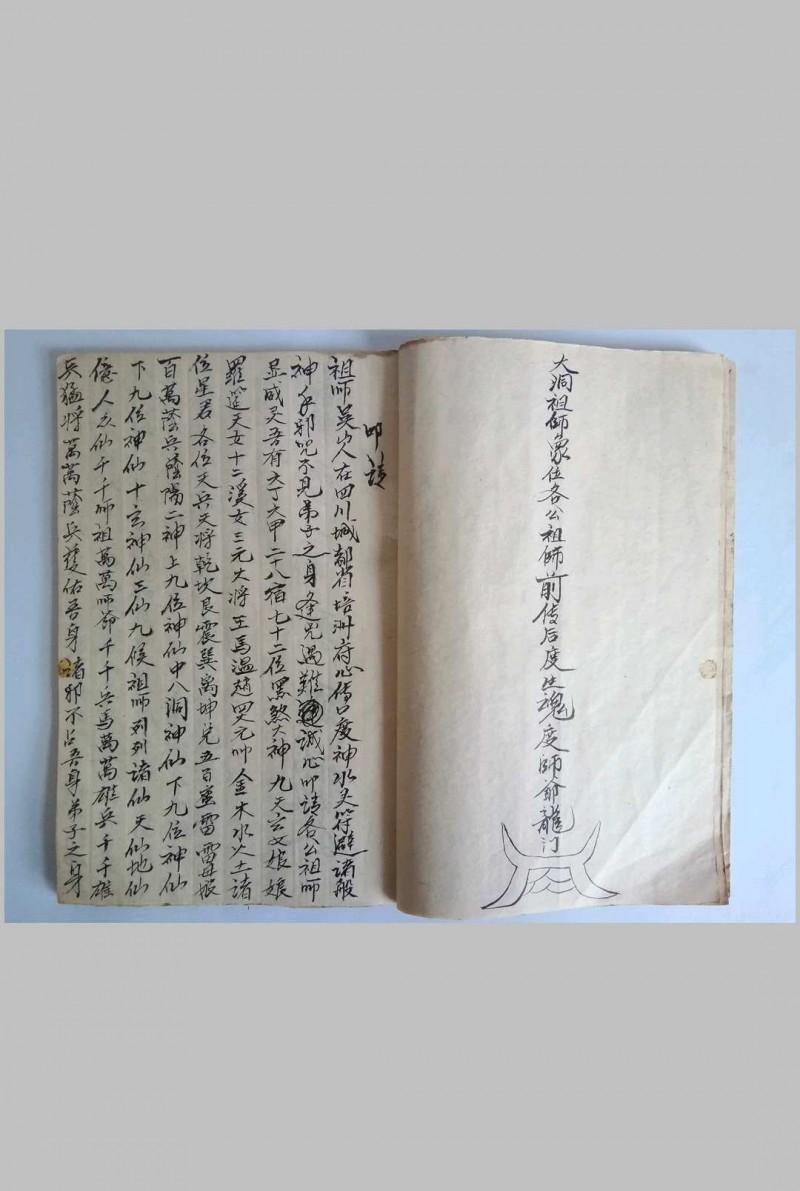 大洞祖師象位各公祖師前传后度生魂度師爺龍门
叩請
祖师吴山人在四川城都省培州府心傳口度神水灵符避諸般
神 邪咒不見弟子之身逢兇遇難誠心叩請各公祖师
显威灵吾有六丁六甲二十八宿七十二位黑煞大神九天玄女娘娘
羅 天女十二溪女三元大将王馬温趙四元帅金木水火土諸
位星君各位天兵天将乾坎艮震巽离坤兑五百蛮雷雷母娘
百萬蔭兵蔭陽二神上九位神仙中八洞神仙下九位神仙
下九位神仙十玄神仙三仙九候祖师列列諸仙天仙地仙
億人众仙千千师祖萬萬师爺千千兵馬萬萬雄兵千千雄
兵猛将萬萬蔭兵護佑吾身諸邪不占吾身弟子之身